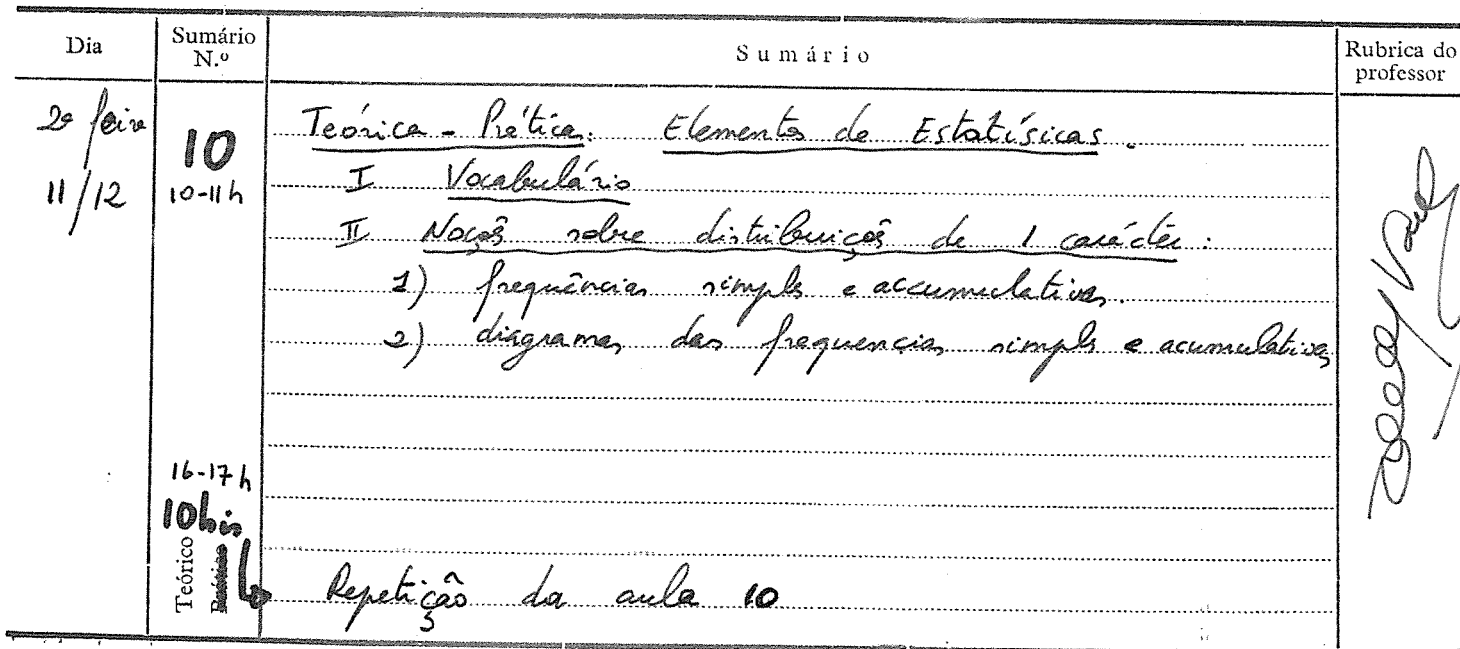 Dia
Sumário N.º
Sumário
Rubrica do professor
2ª feira
11/12
10
10-11 h
Teórica - Prática: Elementos de Estatísicas.
I Vocabulário
II Noçõs sobre distribuiçõs de 1 carácter:
1) frequências simples e accumulativas.
2) diagramas das frequencias simples e acumulativas
16-17 h
10 bis
Teórico
Repetição da aula 10